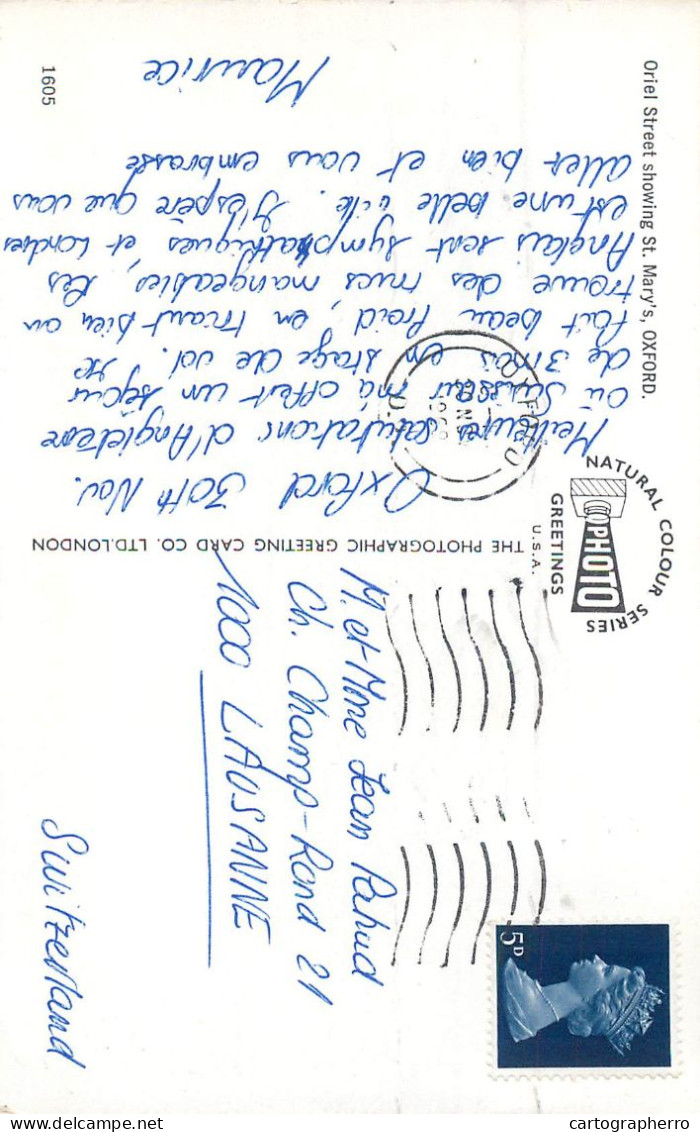 Oriel Street showing St. Mary's, OXFORD.
1605
Oxford 30th Nov.
Meilleures salutations d'Angleterre
où Swissair m'a offert un séjour
de 3 mois en stage de vol. Il
fait beau froid, en triant bien on
trouve des mecs mangeables, les
Anglais sont sympathiques et Londres
est une belle ville. J'espère que vous
allez bien et vous embrasse
Maurice
THE PHOTOGRAPHIC GREETING CARD CO. LTD. LONDON
NATURAL COLOUR SERIES
PHOTO
GREETINGS
U.S.A.
OXFORD
5D
M. et Mme Jean Pahud
Ch. Champ-Rond 21
1000 LAUSANNE
Switzerland
cartographerro